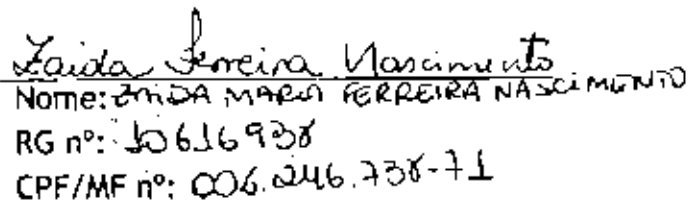 Zaida Ferreira Nascimento
Nome: ZAIDA MARIA FERREIRA NASCIMENTO
RG nº: 10616938
CPF/MF nº: 006.246.738-71